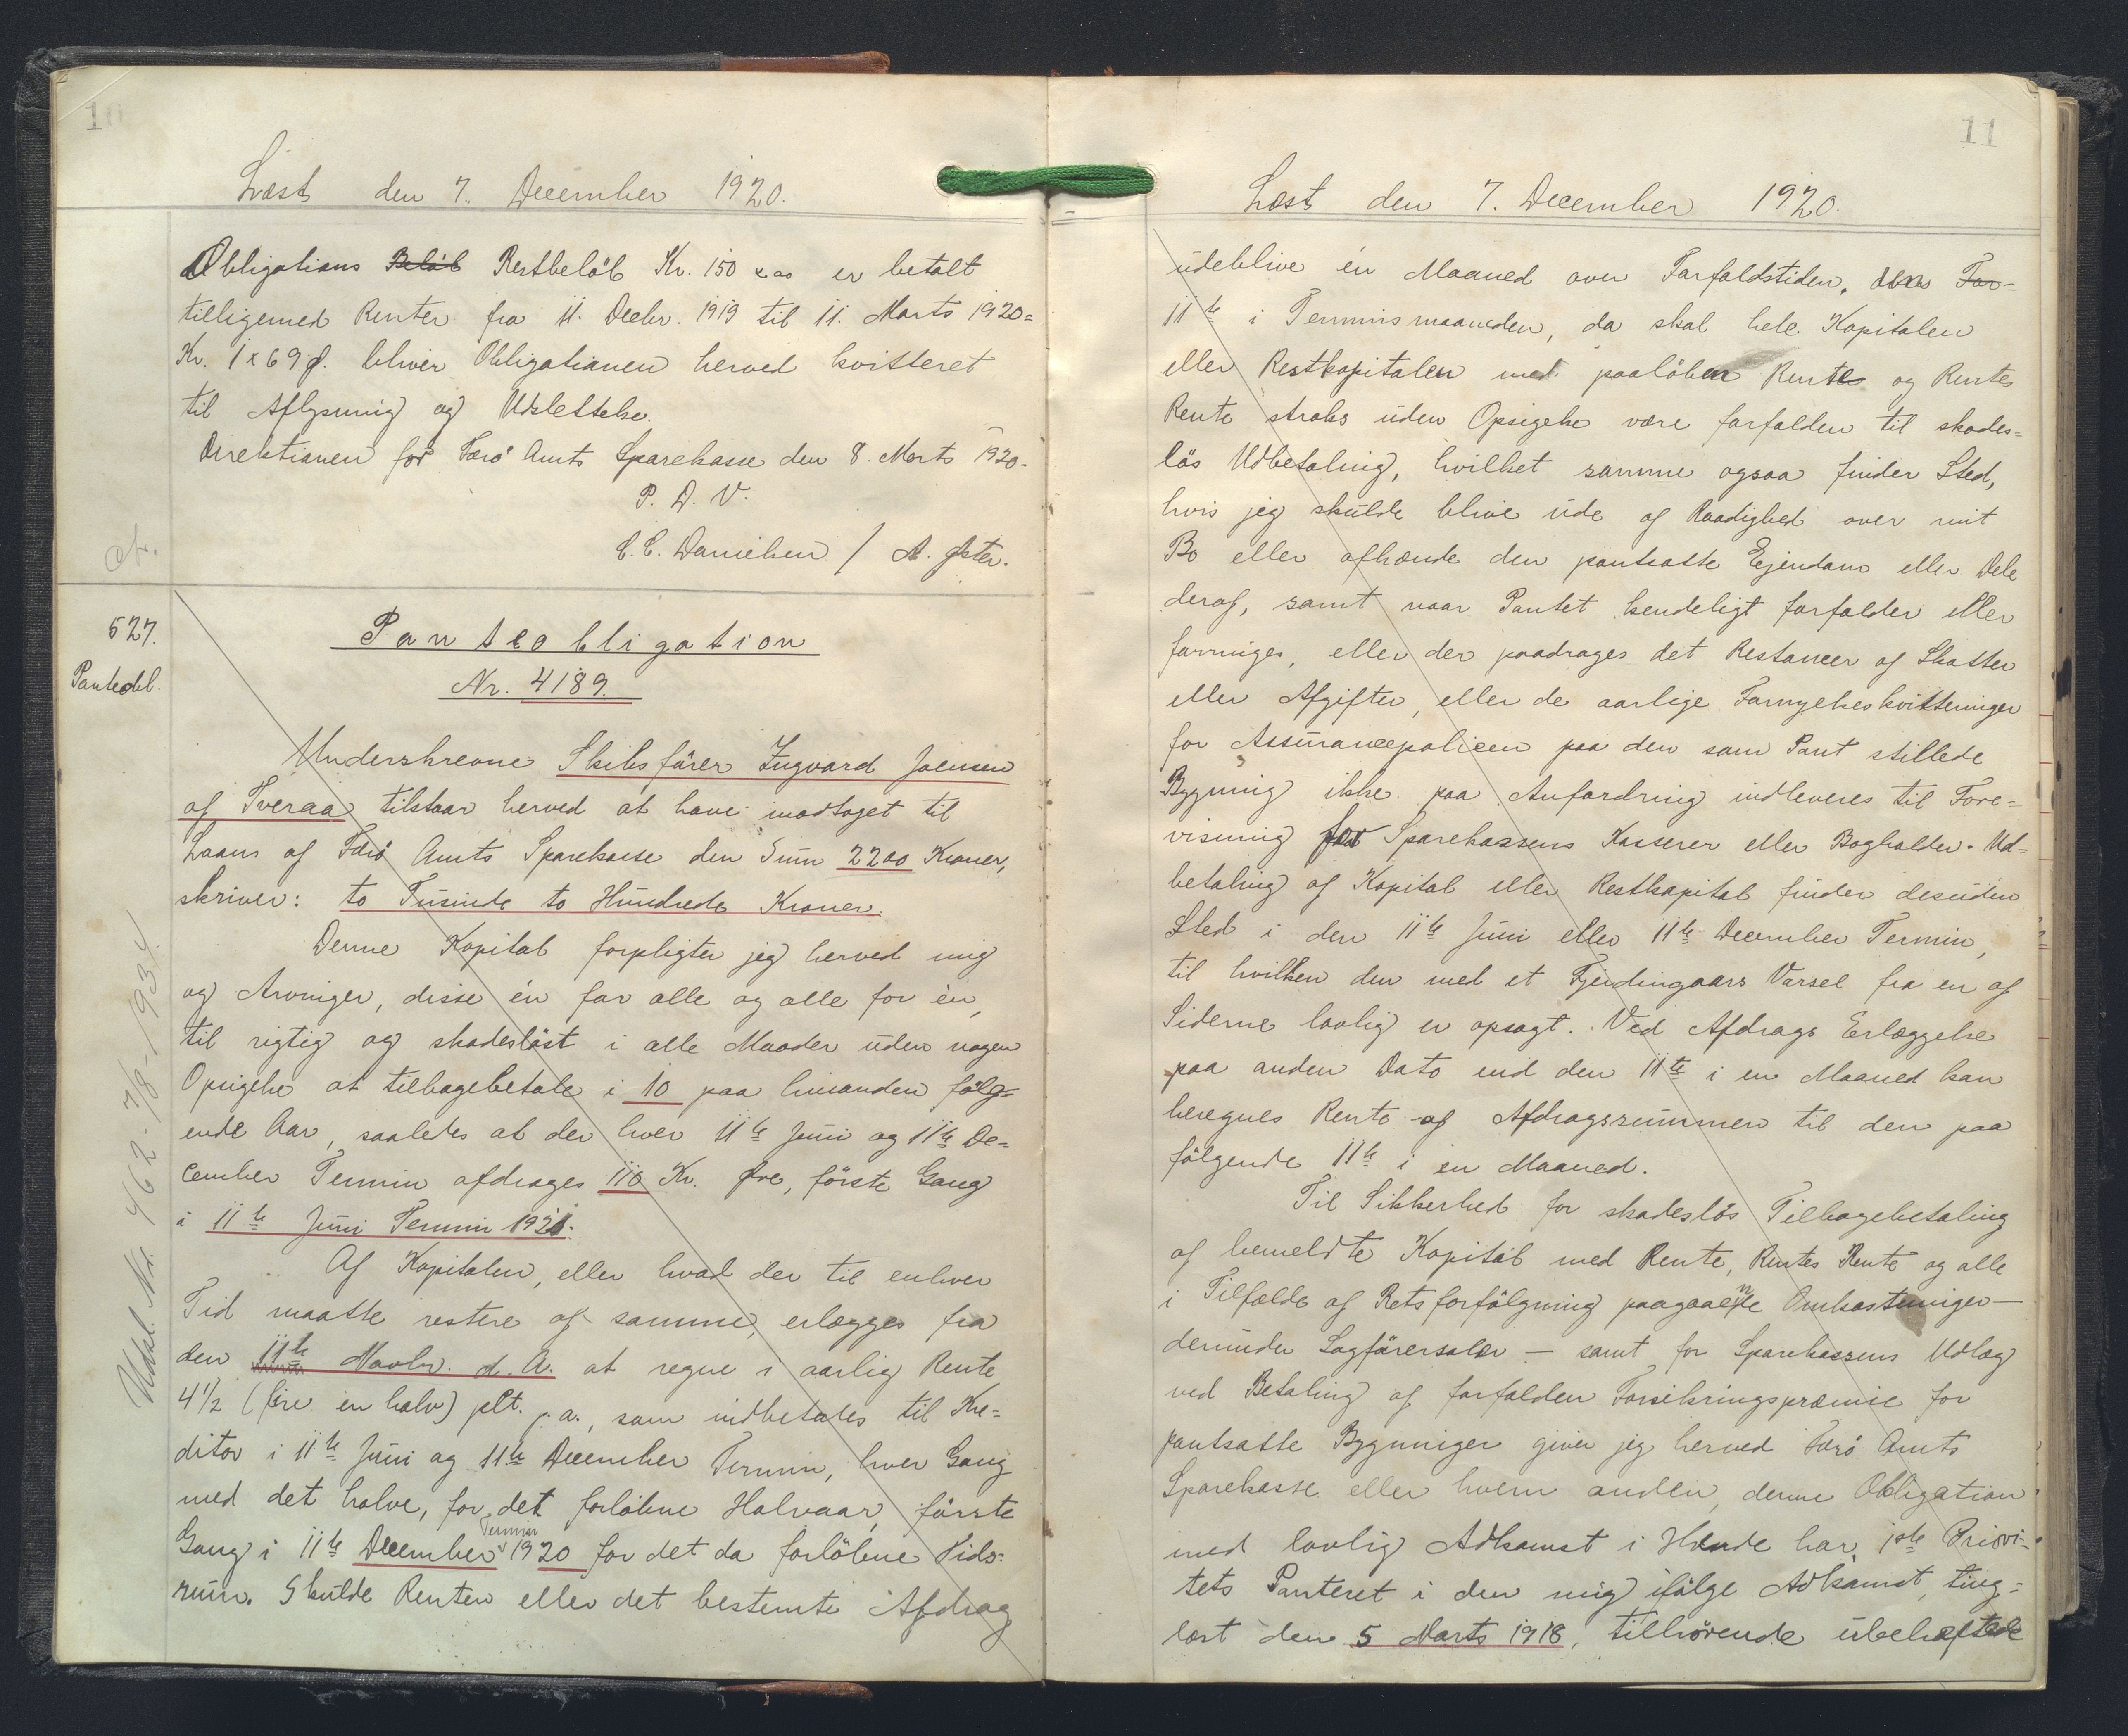 10
Læst den 7. December 1920.
Obligations Beløb Restbelöb Kr. 150 x 00 er betalt
tilligemed Renter fra 11. Decbr. 1919 til 11. Marts 1920=
Kr. 1 x 69 Ø. bliver Obligationen herved kvitteret
til Aflysning og Udslettelse.
Direktionen for Færö Amts Sparekasse den 8. Marts 1920.
P. D. V.
C. C. Danielsen /
527.
Panteobl.
Panteobligation
Nr. 4189.
Underskrevne Skibsförer Ingvard Joensen
af Tveraa tilstaar herved at have modtaget til
Laans af Færö Amts Sparekasse den Sum 2200 Kroner,
skriver: to Tusinde to Hundrede Kroner.
Denne Kapital forpligter jeg herved mig
og Arvinger, disse én for alle og alle for én,
til rigtig og skadesløst i alle Maader uden nogen
Opsigelse at tilbagebetale i 10 paa hinanden fölg=
ende Aar, saaledes at der hver 11te Juni og 11te De=
cember Termin afdrages 110 Kr. Øre, förste Gang
i 11te Juni Termin 1921.
Af Kapitalen, eller hvad der til enhver
Tid maatte restere af samme, erlægges fra
den 11te Novbr. d. A. at regne i aarlig Rente
4 1/2 (fire en halv) pCt. p. a., som indbetales til Kre=
ditor i 11te Juni og 11te December Termin, hver Gang
med det halve, for det forløbne Halvaar, förste
Termin
Gang i 11te December 1920 for det da forlöbne Tids=
rum. Skulde Renten eller det bestemte Afdrag
Udsl. Nr. 462-7/8-1934.
11
Læst den 7. December 1920.
udeblive én Maaned over Forfaldstiden, den For=
11te i Terminsmaaneden, da skal hele Kapitalen
eller Restkapitalen med paalöben Rente og Rentes
Rente straks uden Opsigelse være forfalden til skades=
lös Udbetaling, hvilket samme ogsaa finder Sted,
hvis jeg skulde blive ude af Raadighed over mit
Bo eller afhænde den pantsatte Ejendom eller Dele
deraf, samt naar Pantet kendeligt forfalder eller
forringes, eller der paadrages det Restancer af Skatter
eller Afgifter, eller de aarlige Fornyelseskvitteringer
for Assurancepolicen paa den som Pant stillede
Bygning ikke paa Anfordring indleveres til Fore=
visning for Sparekassens Kasserer eller Bogholder. Ud=
betaling af Kapital eller Restkapital finder desuden
Sted i den 11te Juni eller 11te December Termin,
til hvilken den med et Fjerdingaars Varsel fra en af
Siderne lovlig er opsagt. Ved Afdrags Erlæggelse
paa anden Dato end den 11te i en Maaned kan
beregnes Rente af Afdragssummen til den paa
fölgende 11te i en Maaned.
Til Sikkerhed for skadeslös Tilbagebetaling
af bemeldte Kapital med Rente, Rentes Rente og alle
i Tilfælde af Retsforfölgning paagaaende Omkostninger —
derunder Sagförersalær — samt for Sparekassens Udlæg
ved Betaling af forfalden Forsikringspræmie for
pantsatte Bygninger giver jeg herved Færö Amts
Sparekasse eller hvem anden, denne Obligation
med lovlig Adkomst i Hænde har, 1ste Priori=
tets Panteret i den mig ifölge Adkomst, ting=
læst den 5 Marts 1918, tilhörende ubehæftede